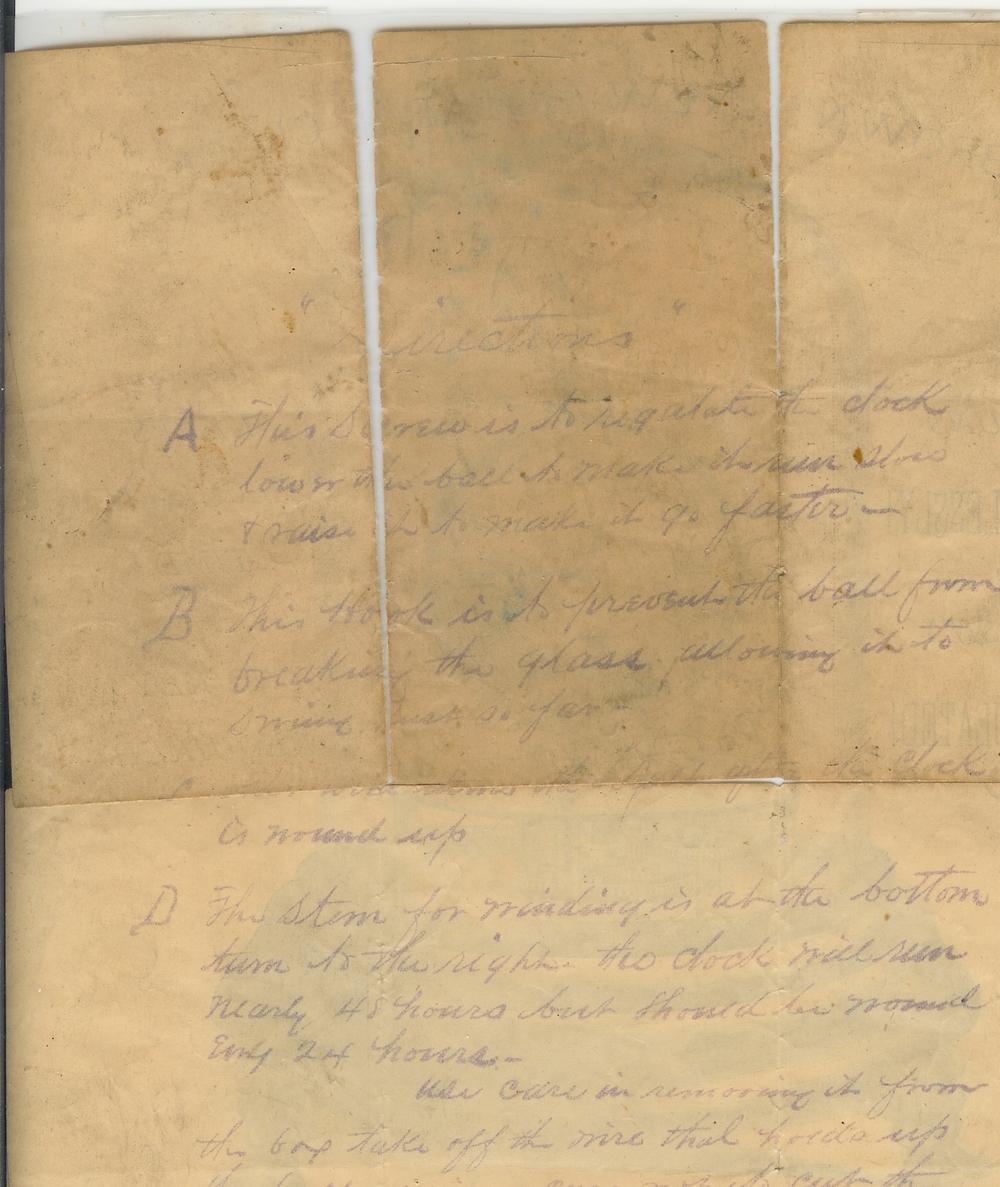 " Directions "
A This Screw is to regulate the clock
lower the ball to make it run slow
& raise it to make it go faster —
B This Hook is to prevent the ball from
breaking the glass, allowing it to
swing just so far -
the clock
is wound up
D The Stem for winding is at the bottom
turn to the right. the clock will run
nearly 48 hours but should be wound
Evry 24 hours. -
use care in removing it from
the box take off the wire that holds up
the